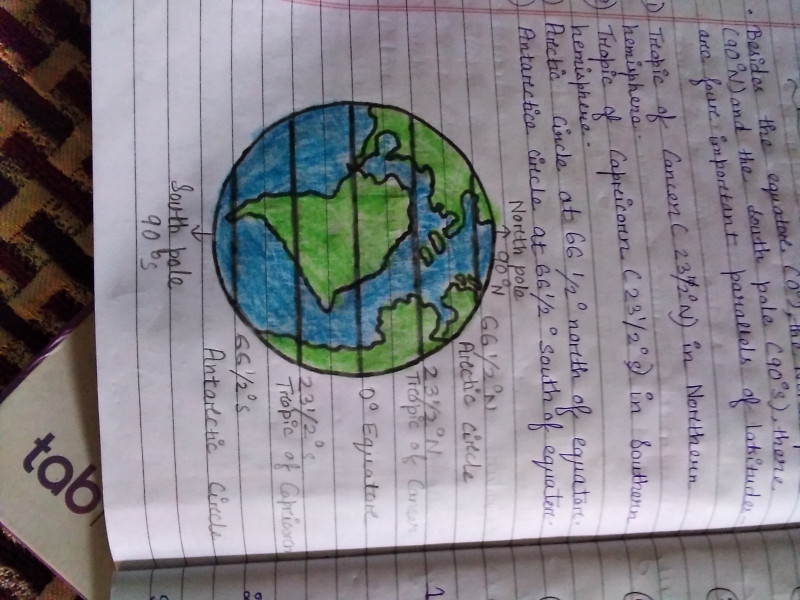 Besides the equator (0°), the
(90°N) and the south pole (90°s), there
are four important parallels of latitudes-
1) Tropic of Cancer (23½°N) in Northern
hemisphere.
Tropic of Capricorn (23 1/2°s) in Southern
hemisphere.
Arctic Circle at 66 1/2° north of equator.
Antarctica circle at 66 1/2° South of equator.
North pole
90°N
66 1/2°N
Arctic circle
23 1/2°N
Tropic of Cancer
0° Equator
23 1/2°s
Tropic of Capricorn
66 1/2°s
Antarctic Circle
South pole
90°s
tab